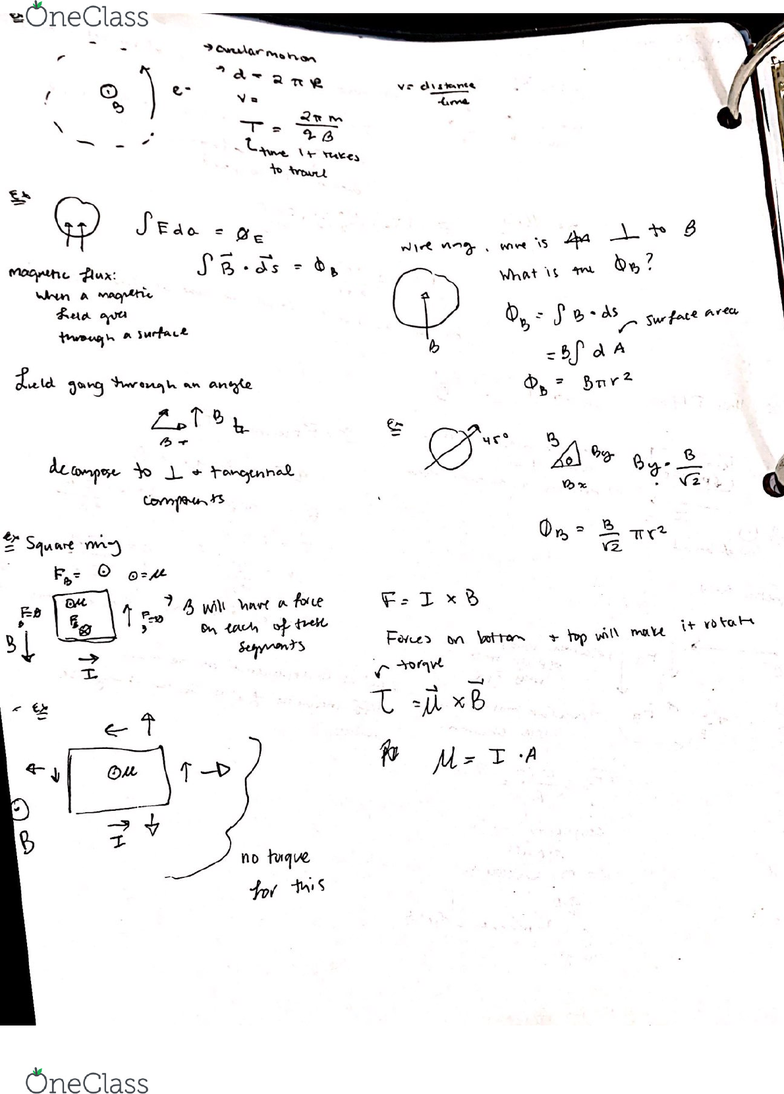 OneClass
→ circular motion
→ d = 2πR
v =
v = distance / time
B
e-
T = 2πm / qB
time it takes
to travel
Ex
∫ E da = ØE
∫ B⃗ · ds⃗ = ΦB
magnetic flux:
when a magnetic
field goes
through a surface
wire ring, wire is ⊥ to B
What is the ΦB?
B
ΦB = ∫ B · ds
surface area
= B ∫ dA
ΦB = Bπr²
field going through an angle
B
decompose to ⊥ + tangential
components
Ex
45°
B
θ
By
Bx
By = B/√2
ΦB = B/√2 πr²
ex Square ring
FB = ⊙ ⊙ = μ
⊙μ
B
I
B will have a force
on each of these
segments
F = I × B
Forces on bottom + top will make it rotate
torque
τ = μ⃗ × B⃗
μ = I · A
- Ex
← ↑
← ↓
⊙μ
↑ →
⊙
B
→ ↓
I
no torque
for this
OneClass